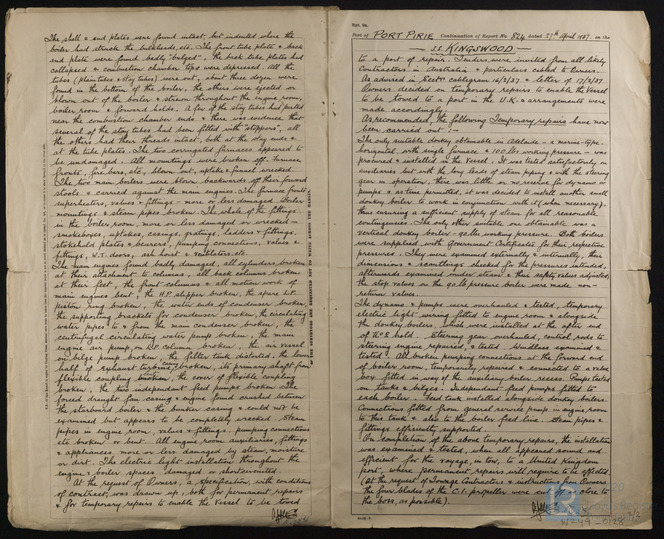 The shell & end plates were found intact, but indented where the
boiler had struck the bulkheads, etc. The front tube plate & back
end plate were found badly "bulged", the back tube plates had
collapsed & combustion chamber tops were depressed. All the
tubes (plain tubes & stay tubes) were out, about three dozen were
found in the bottom of the boiler, the others were ejected or
blown out of the boiler & strewn throughout the engine room,
boiler room & forward hold. A few of the stay tubes had parted
near the combustion chamber ends & there was evidence that
several of the stay tubes had been fitted with "stoppers", all
the others had their threads intact, both at the stay ends &
at the tube plates. The two corrugated furnaces appeared to
be undamaged. All mountings were broken off. Furnace
fronts, fire bars, etc., blown out, uptake & funnel wrecked.
The two main boilers were blown backwards off their forward
stools & carried against the main engines. The furnace fronts
superheaters, valves & fittings - more or less damaged. Boiler
mountings & steam pipes broken. The whole of the fittings
in the boiler room, more or less damaged or wrecked -
smokeboxes, uptakes, casings, gratings, ladders & fittings,
stokehold plates & bearers, pumping connections, valves &
fittings, W.T. doors, ash hoist & ventilators, etc.
The main engines found badly damaged, all cylinders broken
at their attachment to columns, all back columns broken
at their feet, the front columns & all motion work of
main engines bent, the H.P. slipper broken, the spare set
piston ring broken, the water ends of condenser broken,
the supporting brackets for condenser broken, the circulating
water pipes to & from the main condenser broken, the
centrifugal circulating water pump broken, the main
engine air pump on column broken, the air vessel
on bilge pump broken, the filter tank distorted, the lower
half of exhaust turbine broken, its primary shaft from
flexible coupling broken, the cover of flexible coupling
broken, the two independent feed pumps broken. The
forced draught fan casing & engine found crushed between
the starboard boiler & the bunker casing & could not be
examined but appears to be completely wrecked. Steam
pipes in engine room, valves & fittings - pumping connections
etc. broken or bent. All engine room auxiliaries, fittings
& appliances more or less damaged by steam, moisture
or dirt. The electric light installation throughout the
engine & boiler spaces damaged or shortcircuited.
At the request of Owners, a specification, with conditions
of contract, was drawn up, both for permanent repairs
& for temporary repairs to enable the Vessel to be towed
Rpt. 9a.
Port of PORT PIRIE Continuation of Report No. 824 dated 27th April 1937. on the
S.S. KINGSWOOD
to a port of repair. Tenders were invited from all likely
Contractors in Australia & particulars cabled to Owners.
Owners decided on temporary repairs to enable the Vessel
to be towed to a port in the U.K. & arrangements were
made accordingly.
As recommended, the following Temporary repairs have now
been carried out :-
The only suitable donkey obtainable in Adelaide - a marine-type
horizontal with single furnace & 100 lbs working pressure - was
procured & installed in the Vessel. It was tested satisfactorily on
auxiliaries but with the long leads of steam piping & with the steering
gear in operation, there was little or no reserve for dynamo or
pumps at a time permitted, it was decided to install another small
donkey boiler to work in conjunction with it (when necessary),
thus ensuring a sufficient supply of steam for all reasonable
contingencies. The only other suitable one obtainable was a
vertical donkey boiler - 90 lbs working pressure. Both boilers
were supplied with Government Certificates for their respective
pressures. They were examined externally & internally, their
dimensions & scantlings checked for the pressures intended,
afterwards examined under steam & their safety valves adjusted,
the stop valves on the 90 lb pressure boiler were made non-
return valves.
The dynamo & pumps were overhauled & tested, temporary
electric light wiring fitted to engine room & alongside
the donkey boilers, which were installed at the after end
of hold. Steering gear overhauled, control rods to
steering engine repaired, & tested. Windlass examined &
tested. All broken pumping connections at the forward end
of boiler room, temporarily repaired & connected to a valve
box fitted in way of the auxiliary boiler recess. Pumps tested
on tanks & bilges. Independent feed pumps fitted to
each boiler. Feed tank installed alongside donkey boilers.
Connections fitted from general service pump in engine room
to this tank & also to the boiler feed line. Steam pipes &
fittings efficiently supported.
On completion of the above temporary repairs, the installation
was examined & tested, when all appeared sound and
efficient for the voyage, in tow, to a United Kingdom
port, where permanent repairs will require to be effected
(at the request of Towage Contractors & instructions from Owners
the four blades of the C.I. propeller were cut off as close to
the boss as possible).